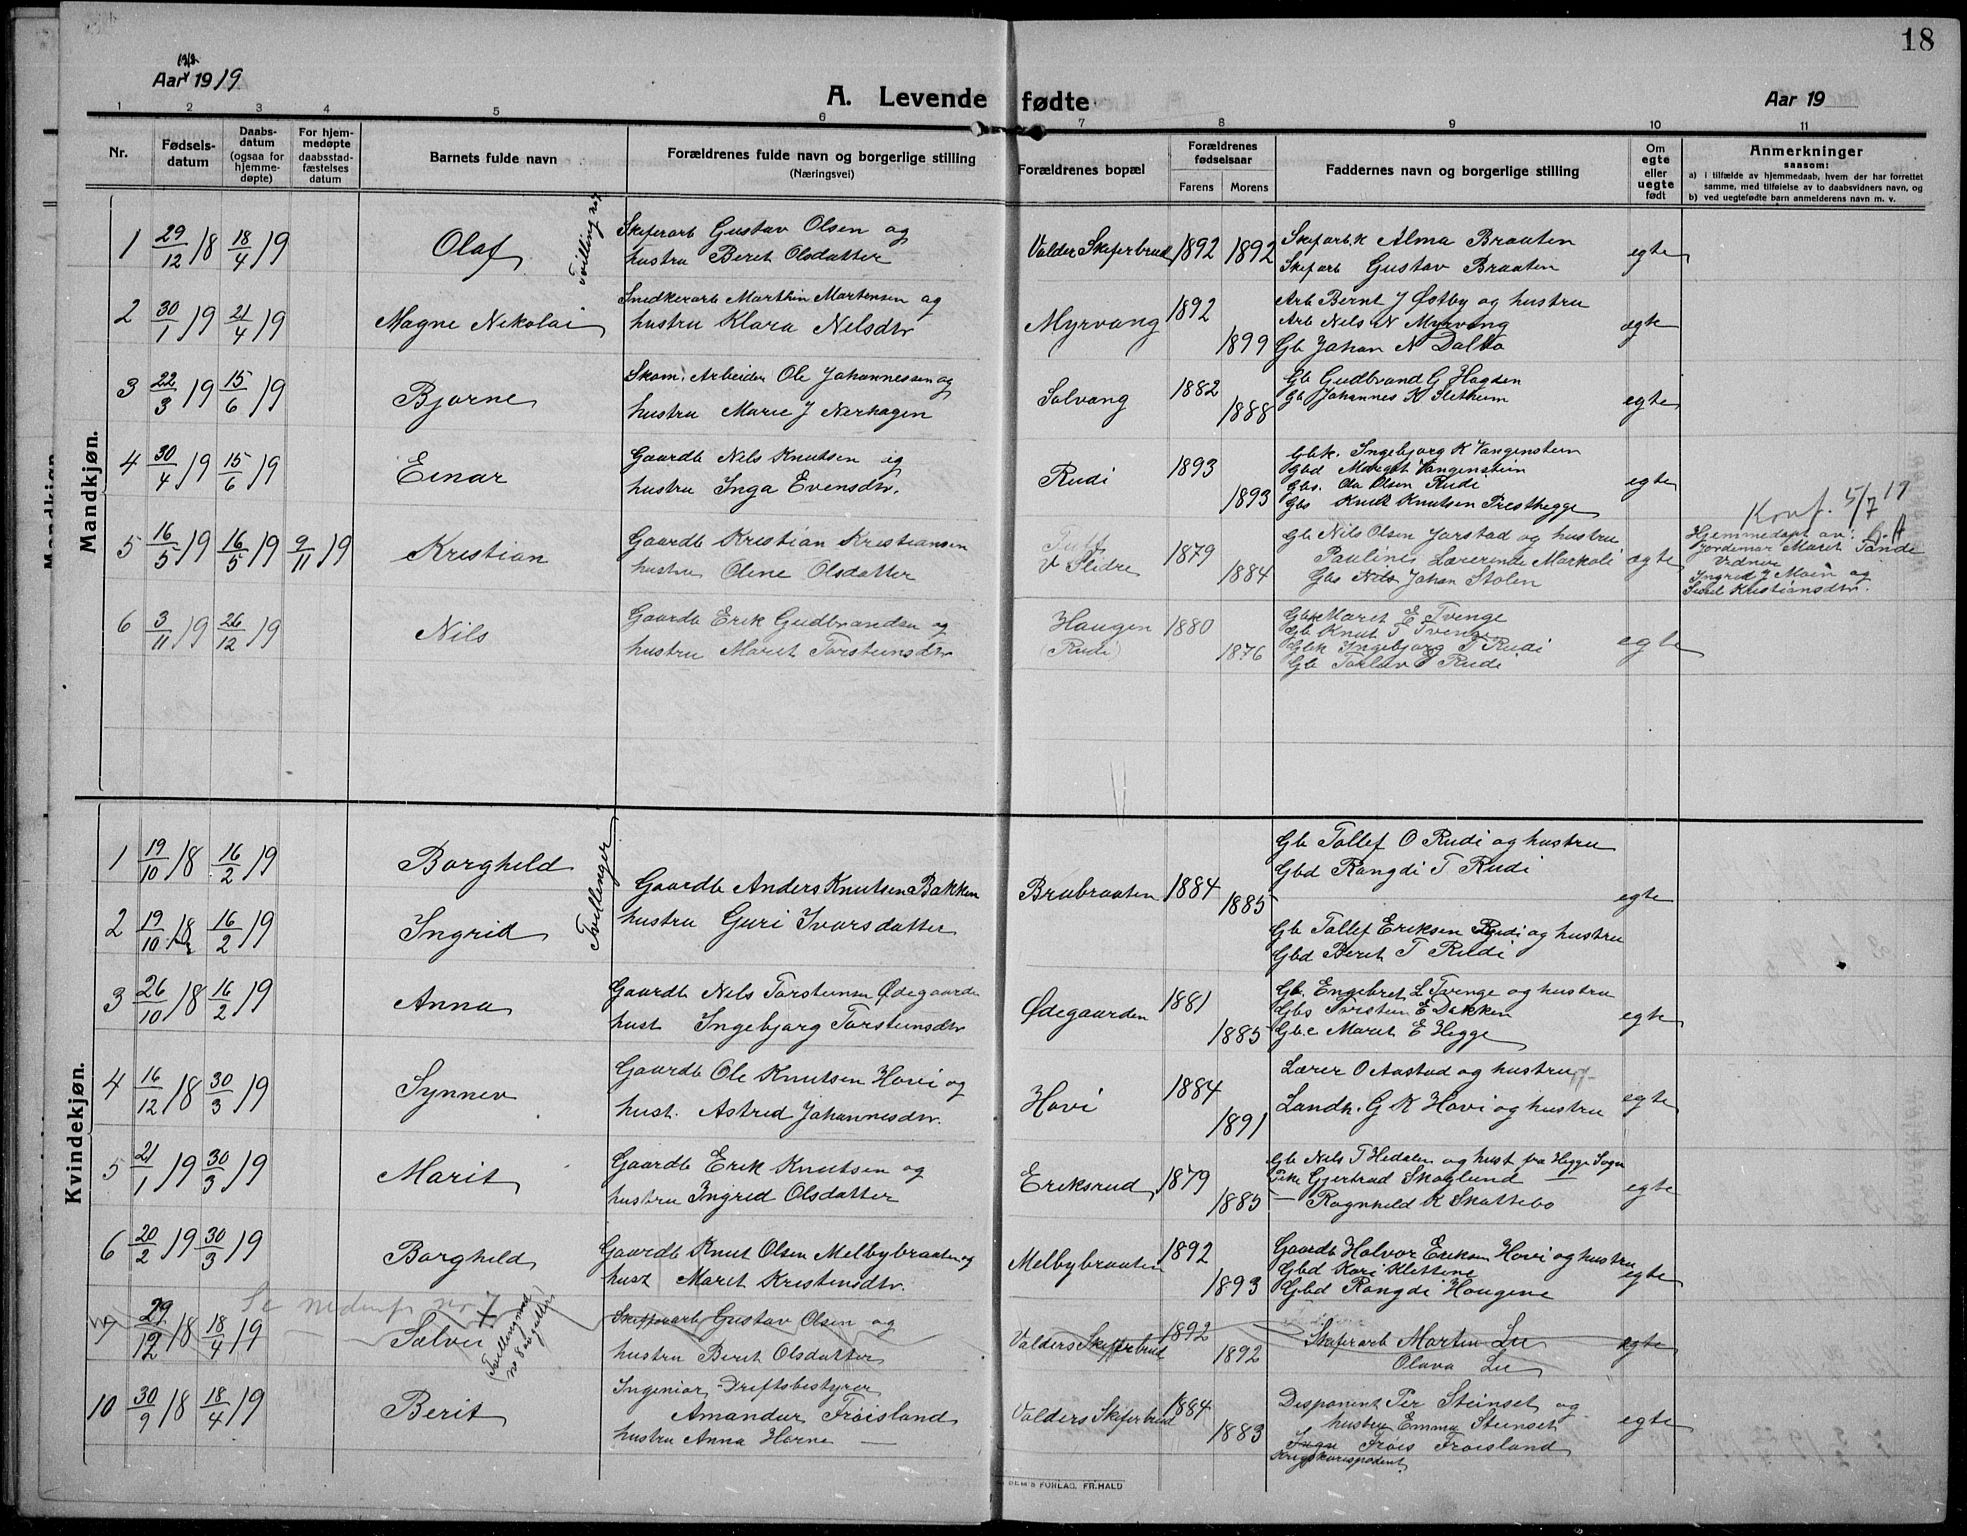 18
1918
Aar 1919
A. Levende fødte
Aar 19
1 2 3 4 5 6 7 8 9 10 11
Nr.
Fødsels-
datum
Daabs-
datum
(ogsaa for
hjemme-
døpte)
For hjem-
medøpte
daabsstad-
fæstelses
datum
Barnets fulde navn
Forældrenes fulde navn og borgerlige stilling
(Næringsvei)
Forældrenes bopæl
Forældrenes
fødselsaar
Farens Morens
Faddernes navn og borgerlige stilling
Om
egte
eller
uegte
født
Anmerkninger
saasom:
a) i tilfælde av hjemmedaab, hvem der har forrettet
samme, med tilføielse av to daabsvidners navn, og
b) ved uegtefødte barn anmelderens navn m. v.
Mandkjøn.
1 29/12 18 18/4 19 Olaf
Tvilling no 7
Skiferarb Gustav Olsen og
hustru Beret Olsdatter
Valders Skiferbrud 1892 1892
Skifarb.k Alma Braaten
Skifarb Gustav Braaten
egte
2 30/1 19 21/4 19 Magne Nikolai
Snedkerarb Marthin Martensen og
hustru Klara Nelsdtr
Myrvang 1892 1899
Arb Bernt J Østby og hustru
Arb Nels N Myrvang
Gb Johan N Dalbo
ægte
3 22/3 19 15/6 19 Bjarne
Skom. Arbeider Ole Johannessen og
hustru Marie J Nerhagen
Solvang 1882 1888
Gb Gudbrand G Hagden
Gb Johannes K Sletheim
egte
4 30/4 19 15/6 19 Einar
Gaardb Nils Knutsen og
hustru Inga Evensdtr.
Rudi 1893 1893
Gbk. Ingebjorg K Vangenstein
Gbd Marget Vangenstein
Gbs. Ola Olsen Rudi
Gbs Knut Knutsen Presthegge
egte
5 16/5 19 16/5 19 9/11 19 Kristian
Gaardb Kristian Kristiansen
hustru Oline Olsdatter
V Slidre 1879 1884
Gb Nils Olsen Jarstad og hustru
Pauline Lærerinde Markoli
Gbs Nils Johan Stolen
ægte
Konf. 5/7 19
Hjemmedøpt av:
Jordemor Maret Tande
Vidner
Ingrid J Moen og
Sissel Kristiansdtr.
6 3/11 19 26/12 19 Nils
Gaardb Erik Gudbrandsen og
hustru Marit Torsteinsdtr
Haugen
(Rudi) 1880 1876
Gbk Maret E Tvenge
Gb Knut T Tvenge
Gbk Ingebjorg T Rudi
Gb Torleiv E Rudi
egte
Kvindekjøn.
1 19/10 18 16/2 19 Borghild
Tvillinger
Gaardb Anders Knutsen Bakken
hustru Guri Ivarsdatter
Brubraaten 1884 1885
Gb Tollef O Rudi og hustru
Gbd Rangdi T Rudi
egte
2 19/10 18 16/2 19 Ingrid
Gb Tollef Eriksen Rudi og hustru
Gbd Beret T Rudi
3 26/10 18 16/2 19 Anna
Gaardb Nils Torsteinsen Ødegaarden
hust Ingebjorg Torsteinsdtr
Ødegaarden 1881 1885
Gb. Engebret L Tvenge og hustru
Gbs Torstein E Dokken
Gb.e Marit E Hegge
egte
4 16/12 18 30/3 19 Synnev
Gaardb Ole Knutsen Hovi og
hust. Astrid Johannesdtr.
Hovi 1884 1891
Lærer O Aastad og hustru
Landh. G K Hovi og hustru
egte
5 21/1 19 30/3 19 Marit
Gaardb Erik Knutsen og
hustru Ingrid Olsdatter
Eriksrud 1879 1885
Gb Nils T Hedalen og hust fra Hegge Sogn
Pike Gjertrud Skoglund
— Ragnhild K Skattebo
egte
6 20/2 19 30/3 19 Borghild
Gaardb Knut Olsen Melbybraaten og
hust Marit Kristensdtr.
Melbybraaten 1892 1893
Gaardb Halvor Eriksen Hovi og hustru
Gbd Kari Klettene
Gbd Rangdi Haugene
egte
Se nedenfor no 7
7 29/12 18 18/4 19 Solvei
(Tvilling med
no 8 av gutter)
Skifferarb Gustav Olsen og
hustru Beret Olsdatter
Valders Skifferbrud 1892 1892
Skiferarb Martin Lie
Olava Lie
egte
10 30/9 18 18/4 19 Berit
Ingeniør, Driftsbestyrer
Amandur Frøisland
hustru Anna Horne —
Valders Skiferbrud 1884 1883
Disponent Per Steinset og
hustru Emma Steinset
Frøis Frøisland
Krigskorrespodent
egte
FORLAG. FR. HALD